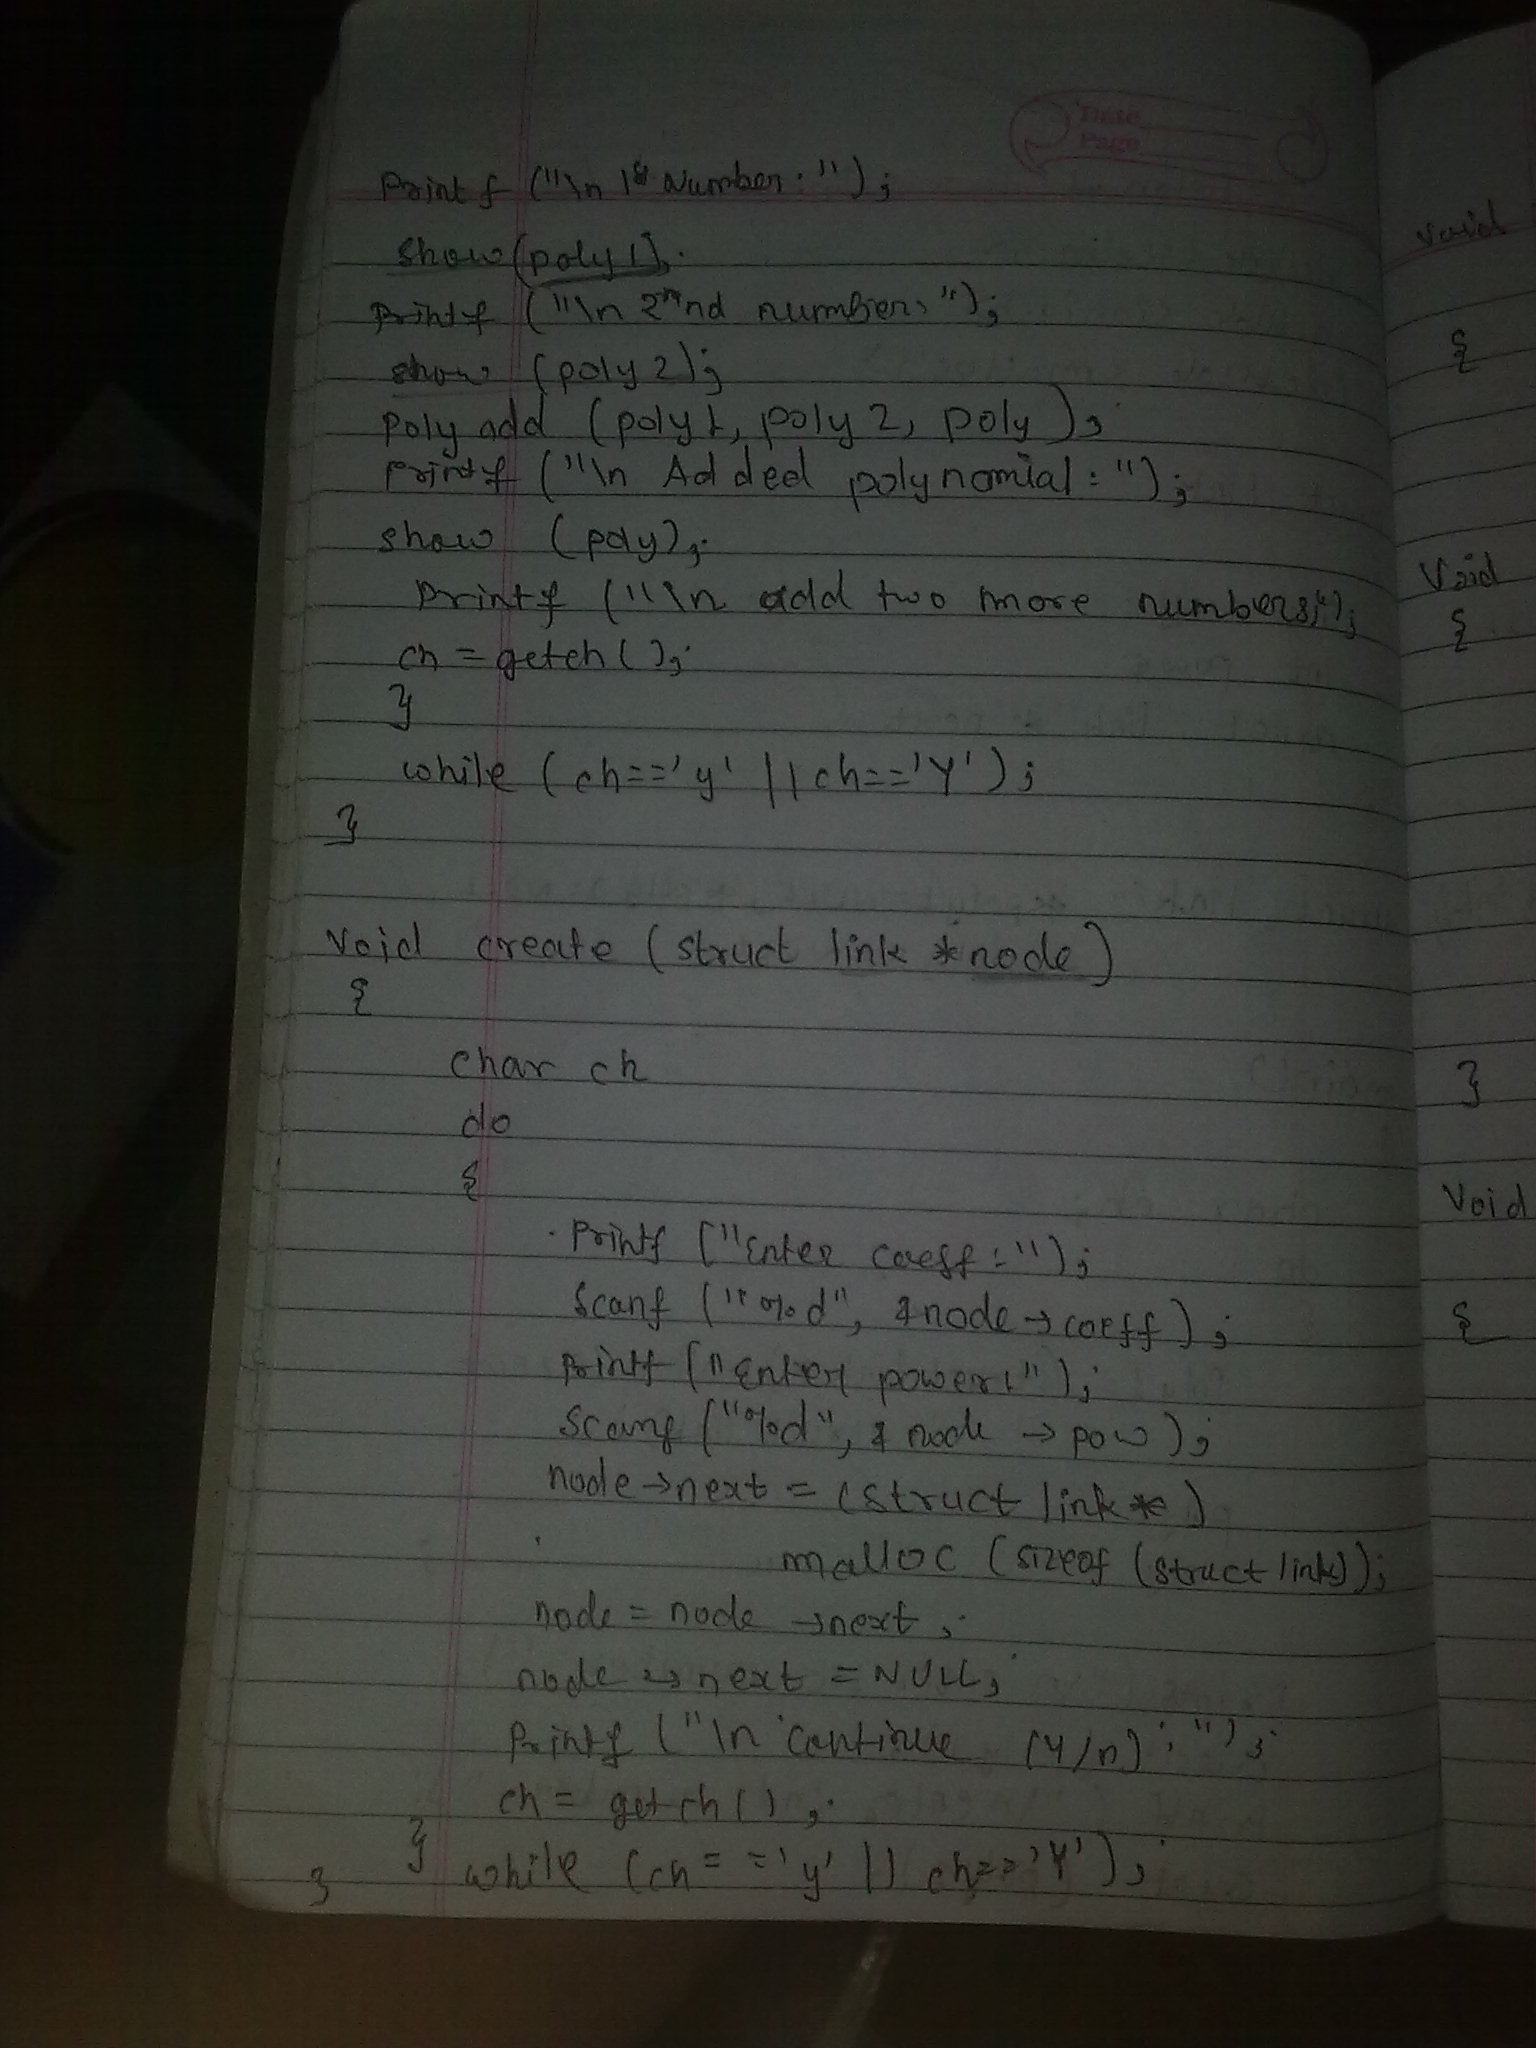 Date
Page
Printf ("\n 1st Number : ");
show (poly 1);
printf ("\n 2nd number: ");
show (poly 2);
Poly add (poly 1, poly 2, poly );
printf ("\n Added polynomial : ");
show (poly);
printf ("\n add two more numbers:");
ch = getch ();
}
while (ch=='y' || ch=='Y');
}
void create (struct link *node)
{
char ch
do
{
Printf ("Enter coeff : ");
Scanf ("%d", &node → coeff );
Printf ("Enter power: ");
Scanf ("%d", & node → pow );
node → next = (struct link * )
malloc (sizeof (struct link));
node = node → next ;
node → next = NULL;
Printf ("\n Continue (Y/n) : ");
ch = getch () ;
} while (ch = ='y' || ch=='Y');
}
void
{
Void
{
}
Void
{